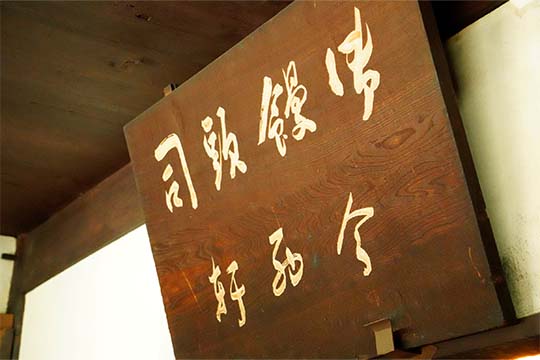 御饅頭司
今西軒